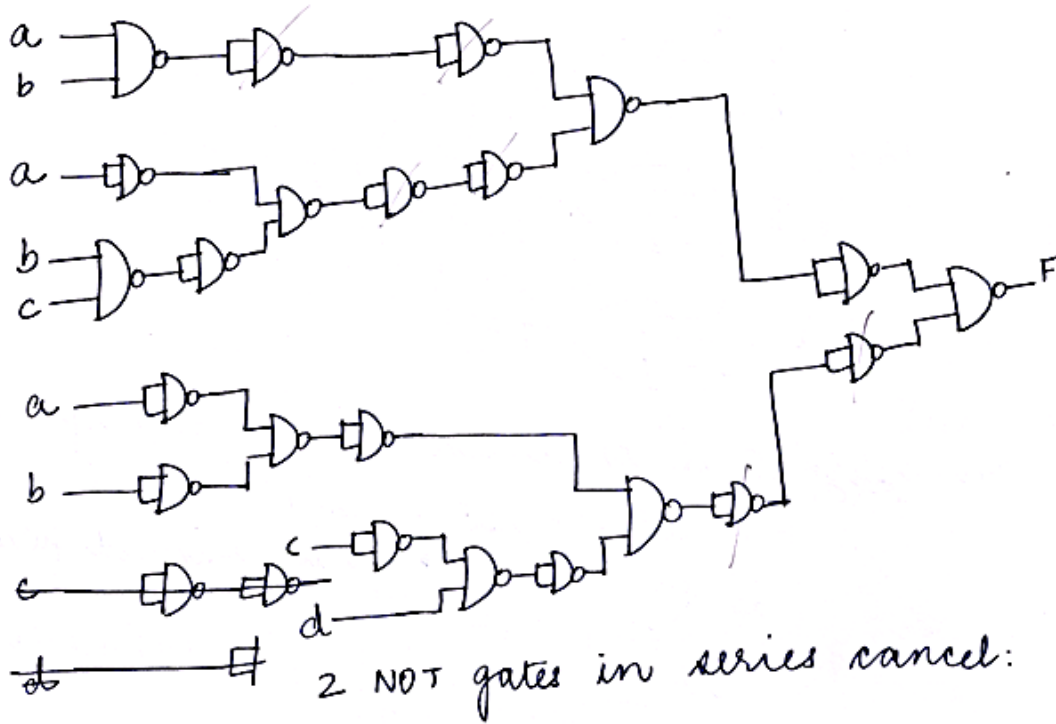 a
b
a
b
c
F
a
b
c
c
d
d
2 NOT gates in series cancel: